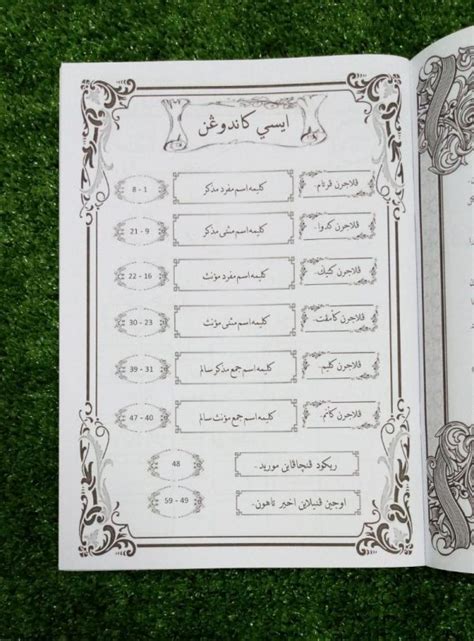 ايسي كاندوڠن
ڤلاجرن ڤرتام. كليمه اسم مفرد مذكر 8 - 1
ڤلاجرن كدوا. كليمه اسم مثنى مذكر 21 - 9
ڤلاجرن كتيݢ. كليمه اسم مفرد مؤنث 22 - 16
ڤلاجرن كأمڤت. كليمه اسم مثنى مؤنث 30 - 23
ڤلاجرن كليم. كليمه اسم جمع مذكر سالم 39 - 31
ڤلاجرن كأنم. كليمه اسم جمع مؤنث سالم 47 - 40
ريكود ڤنچاڤاين موريد. 48
اوجين ڤنيلاين اخير تاهون. 59 - 49